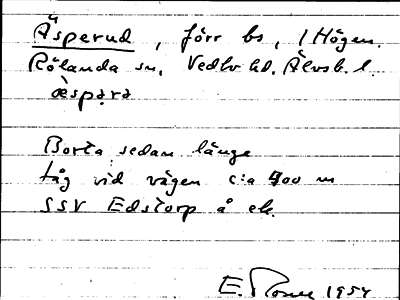 Äsperud, förr bs, 1 Högen.
Rölanda sn, Vedbo hd. Älvsb. l.
æspərα
Borta sedan länge
låg vid vägen c:a 400 m
SSV Edstorp å ek.
E. 1954